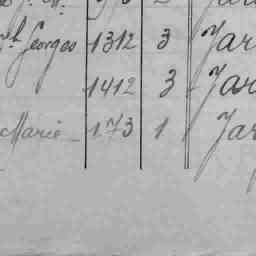 St Georges 1312 3 Jar
1412 3 Jar
Marie 173 1 Jar